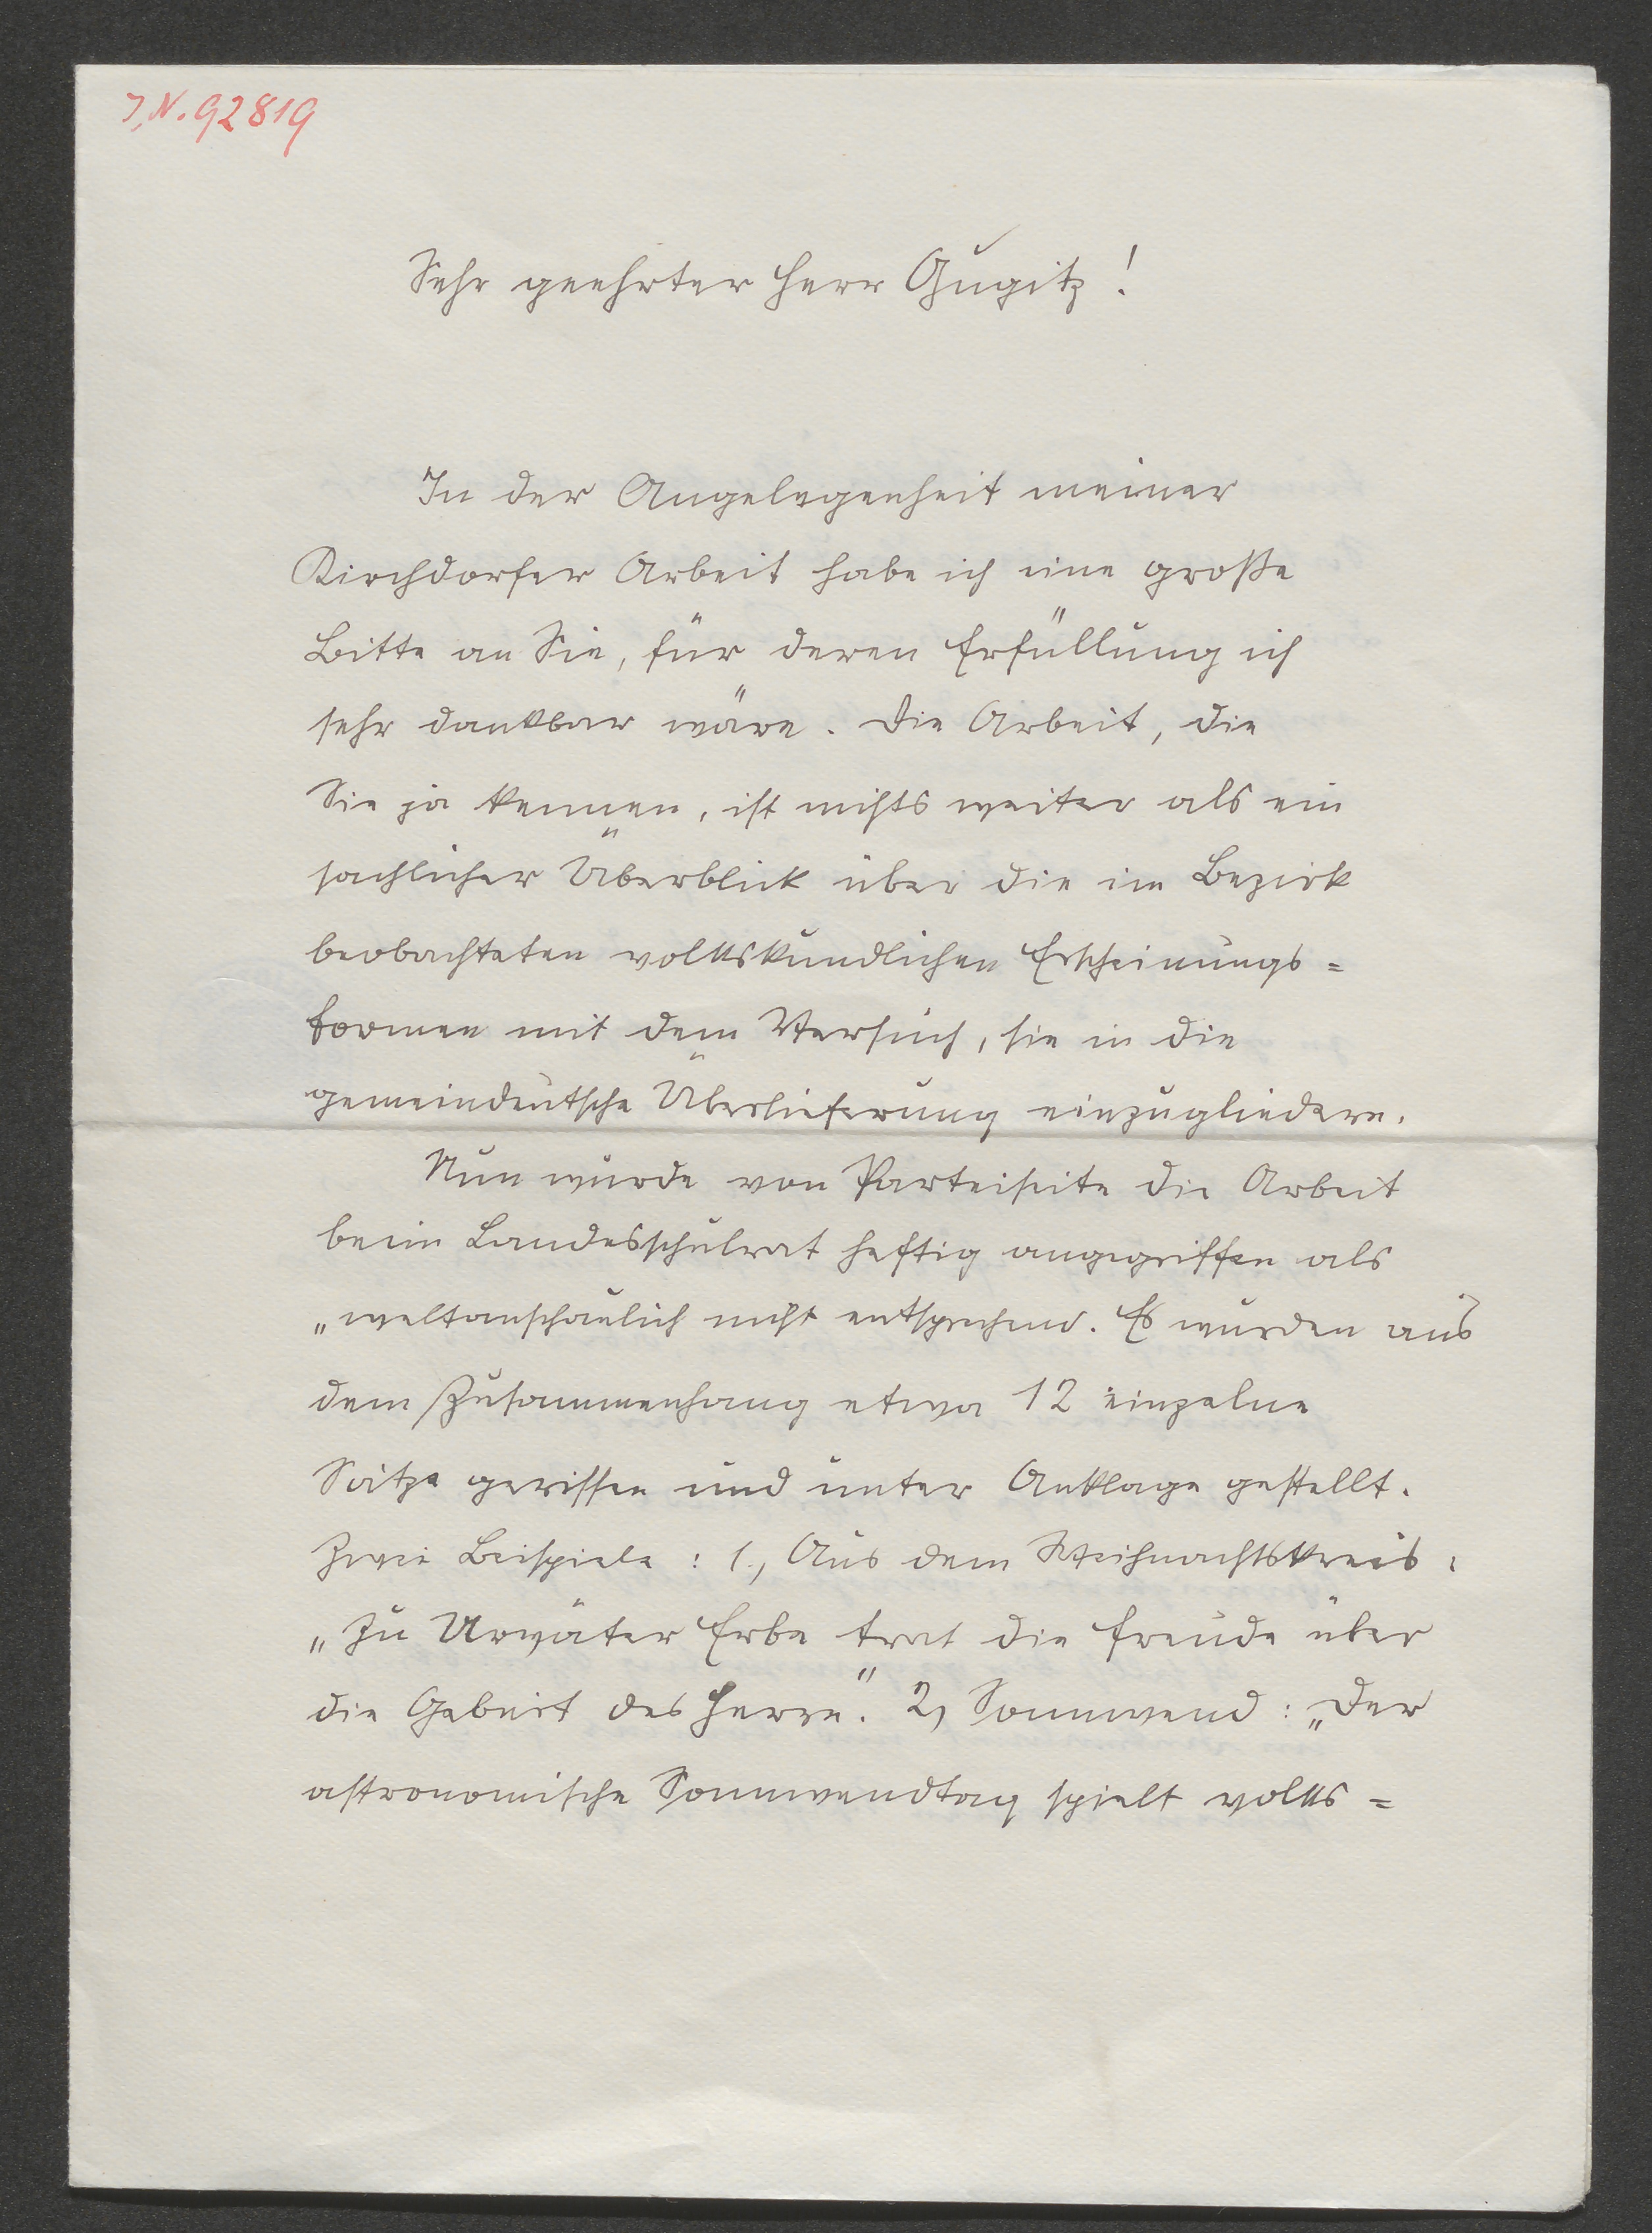 J.N. 92819
Sehr geehrter Herr Gugitz!
In der Angelegenheit meiner
Kirchdorfer Arbeit habe ich eine große
Bitte an Sie, für deren Erfüllung ich
sehr dankbar wäre. Die Arbeit, die
Sie ja kennen, ist nichts weiter als ein
sachlicher Überblick über die im Bezirk
beobachteten volkskundlichen Erscheinungs=
formen mit dem Versuch, sie in die
gemeindeutsche Überlieferung einzugliedern.
Nun wurde von Parteiseite die Arbeit
beim Landesschulrat heftig angegriffen als
„weltanschaulich nicht entsprechend. Es wurden aus
dem Zusammenhang etwa 12 einzelne
Sätze gerissen und unter Anklage gestellt.
Zwei Beispiele: 1., Aus dem Weihnachtskreis:
„Zu Urväter Erbe trat die Freude über
die Geburt des Herrn". 2, Sonnwend: „Der
astronomische Sonnwendtag spielt volks=